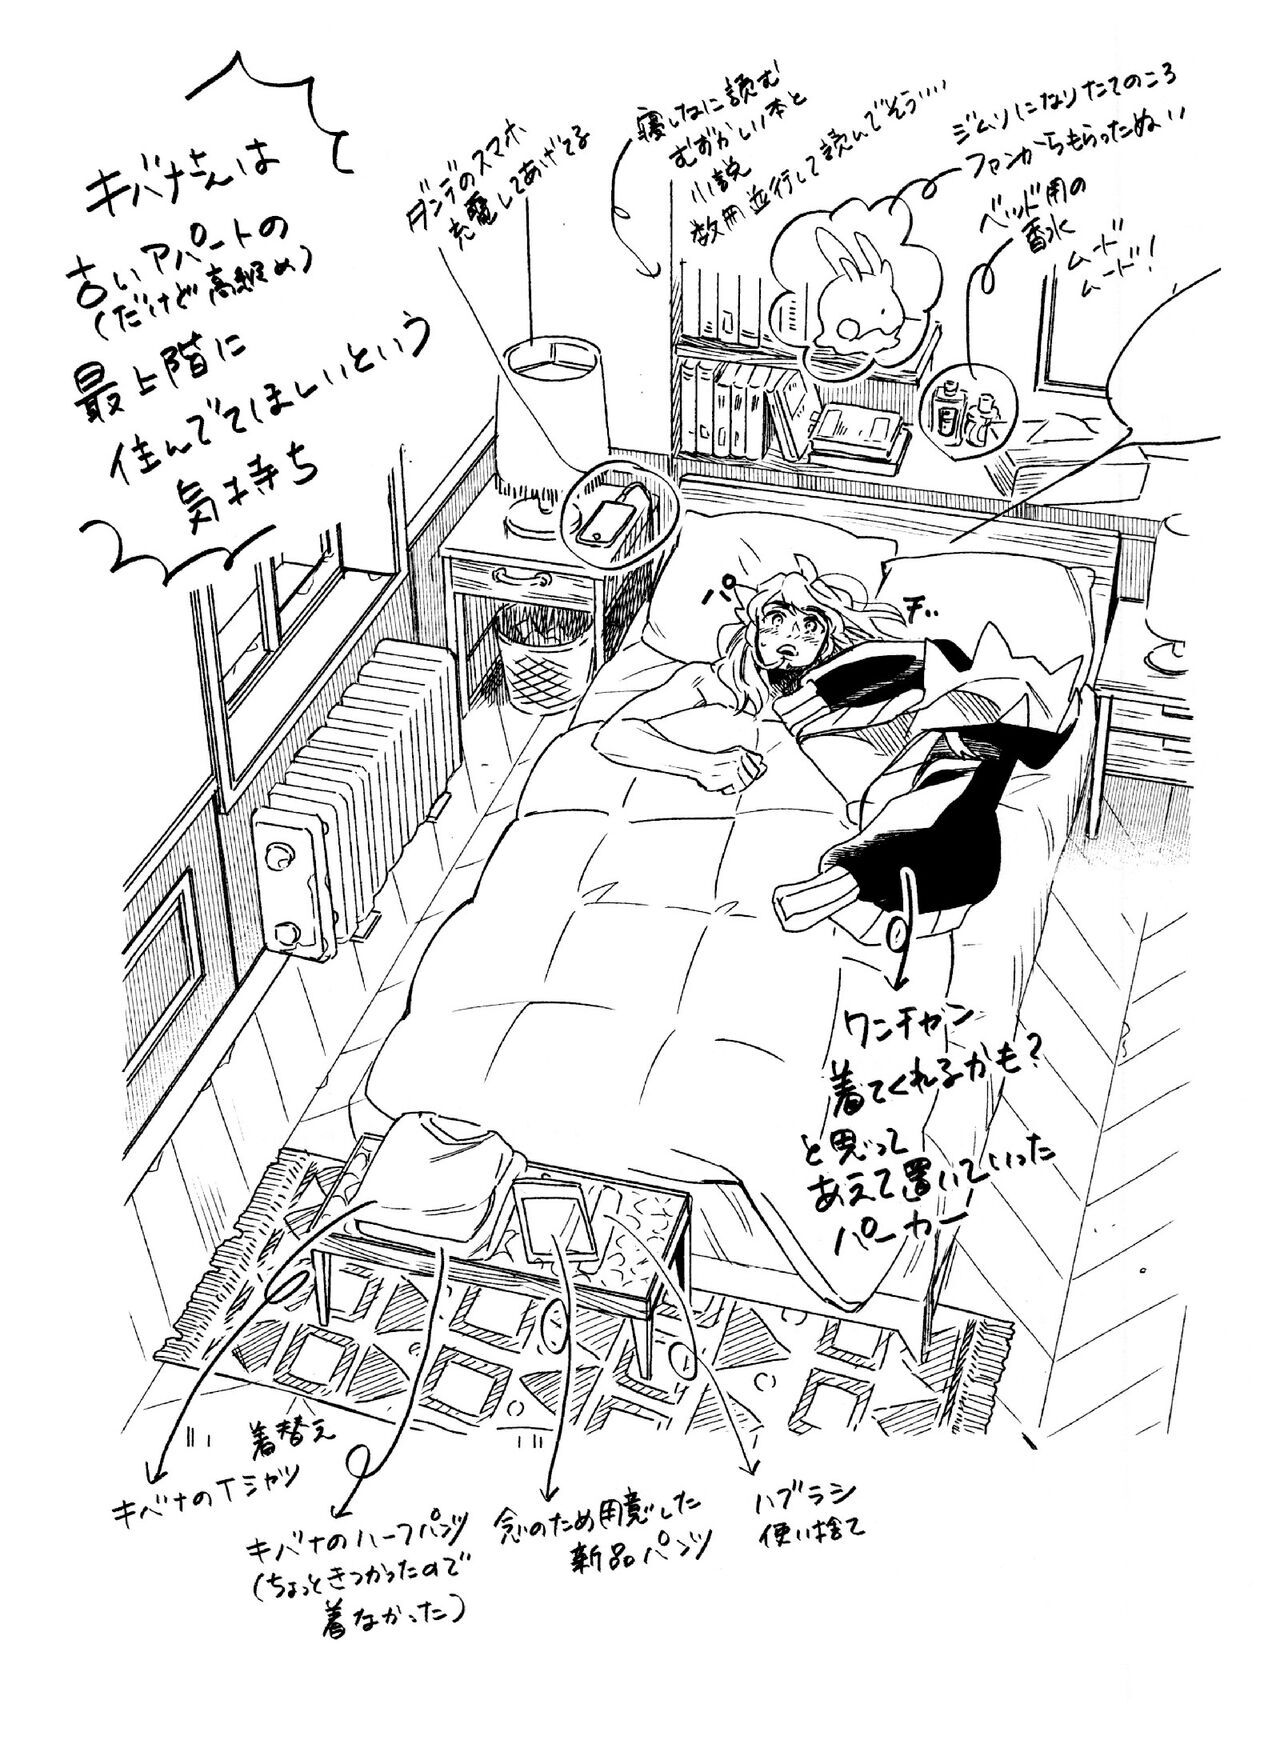 キバナさんは
古いアパートの
(だけど高級め)
最上階に
住んでてほしいという
気持ち
ダンデのスマホ
充電してあげてる
寝しなに読む
むずかしい本と
小説
数冊並行して読んでそう....
ジムリになりたてのころ
ファンからもらったぬい
ベッド用の
香水
ムード
ムード!
パ
チ..
ワンチャン
着てくれるかも?
と思って
あえて置いていった
パーカー
着替え
キバナのTシャツ
キバナのハーフパンツ
(ちょっときつかったので
着なかった)
念のため用意した
新品パンツ
ハブラシ
使い捨て